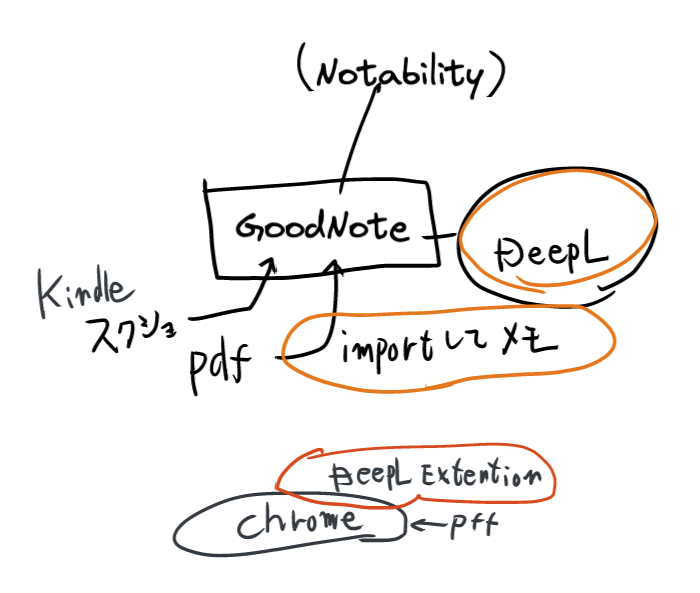 (Notability)
GoodNote
DeepL
Kindle
スクショ
pdf
importしてメモ
DeepL Extention
chrome
←pff